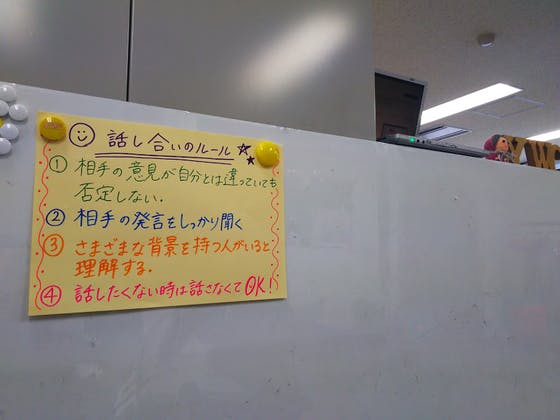 話し合いのルール
① 相手の意見が自分とは違っていても
否定しない.
② 相手の発言をしっかり聞く
③ さまざまな背景を持つ人がいると
理解する.
④ 話したくない時は話さなくてOK!